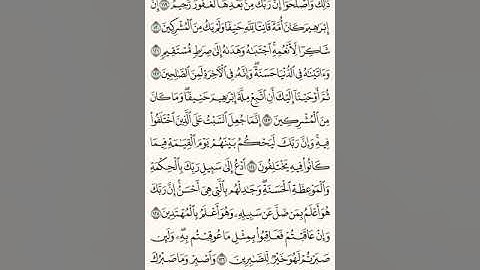 ذَٰلِكَ وَأَصْلَحُوٓا۟ إِنَّ رَبَّكَ مِنۢ بَعْدِهَا لَغَفُورٌ رَّحِيمٌ ١١٩ إِنَّ
إِبْرَٰهِيمَ كَانَ أُمَّةً قَانِتًا لِّلَّهِ حَنِيفًا وَلَمْ يَكُ مِنَ ٱلْمُشْرِكِينَ ١٢٠
شَاكِرًا لِّأَنْعُمِهِ ٱجْتَبَىٰهُ وَهَدَىٰهُ إِلَىٰ صِرَٰطٍ مُّسْتَقِيمٍ ١٢١
وَءَاتَيْنَٰهُ فِى ٱلدُّنْيَا حَسَنَةً وَإِنَّهُۥ فِى ٱلْءَاخِرَةِ لَمِنَ ٱلصَّٰلِحِينَ ١٢٢
ثُمَّ أَوْحَيْنَآ إِلَيْكَ أَنِ ٱتَّبِعْ مِلَّةَ إِبْرَٰهِيمَ حَنِيفًا وَمَا كَانَ
مِنَ ٱلْمُشْرِكِينَ ١٢٣ إِنَّمَا جُعِلَ ٱلسَّبْتُ عَلَى ٱلَّذِينَ ٱخْتَلَفُوا۟
فِيهِ وَإِنَّ رَبَّكَ لَيَحْكُمُ بَيْنَهُمْ يَوْمَ ٱلْقِيَٰمَةِ فِيمَا
كَانُوا۟ فِيهِ يَخْتَلِفُونَ ١٢٤ ٱدْعُ إِلَىٰ سَبِيلِ رَبِّكَ بِٱلْحِكْمَةِ
وَٱلْمَوْعِظَةِ ٱلْحَسَنَةِ وَجَٰدِلْهُم بِٱلَّتِى هِىَ أَحْسَنُ إِنَّ رَبَّكَ
هُوَ أَعْلَمُ بِمَن ضَلَّ عَن سَبِيلِهِۦ وَهُوَ أَعْلَمُ بِٱلْمُهْتَدِينَ ١٢٥
وَإِنْ عَاقَبْتُمْ فَعَاقِبُوا۟ بِمِثْلِ مَا عُوقِبْتُم بِهِۦ وَلَئِن
صَبَرْتُمْ لَهُوَ خَيْرٌ لِّلصَّٰبِرِينَ ١٢٦ وَٱصْبِرْ وَمَا صَبْرُكَ